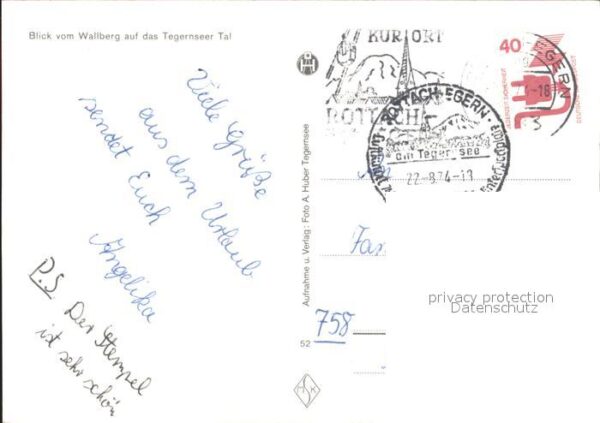 Blick vom Wallberg auf das Tegernseer Tal
Viele Grüße
aus dem Urlaub
sendet Euch
Angelika
P.S. Der Stempel
ist sehr schön
Aufnahme u. Verlag: Foto A. Huber Tegernsee
52
KURORT
ROTTACH
ROTTACH-EGERN
am Tegernsee
22.-8.74-18
EGERN
-18
40
Fam
758
privacy protection
Datenschutz